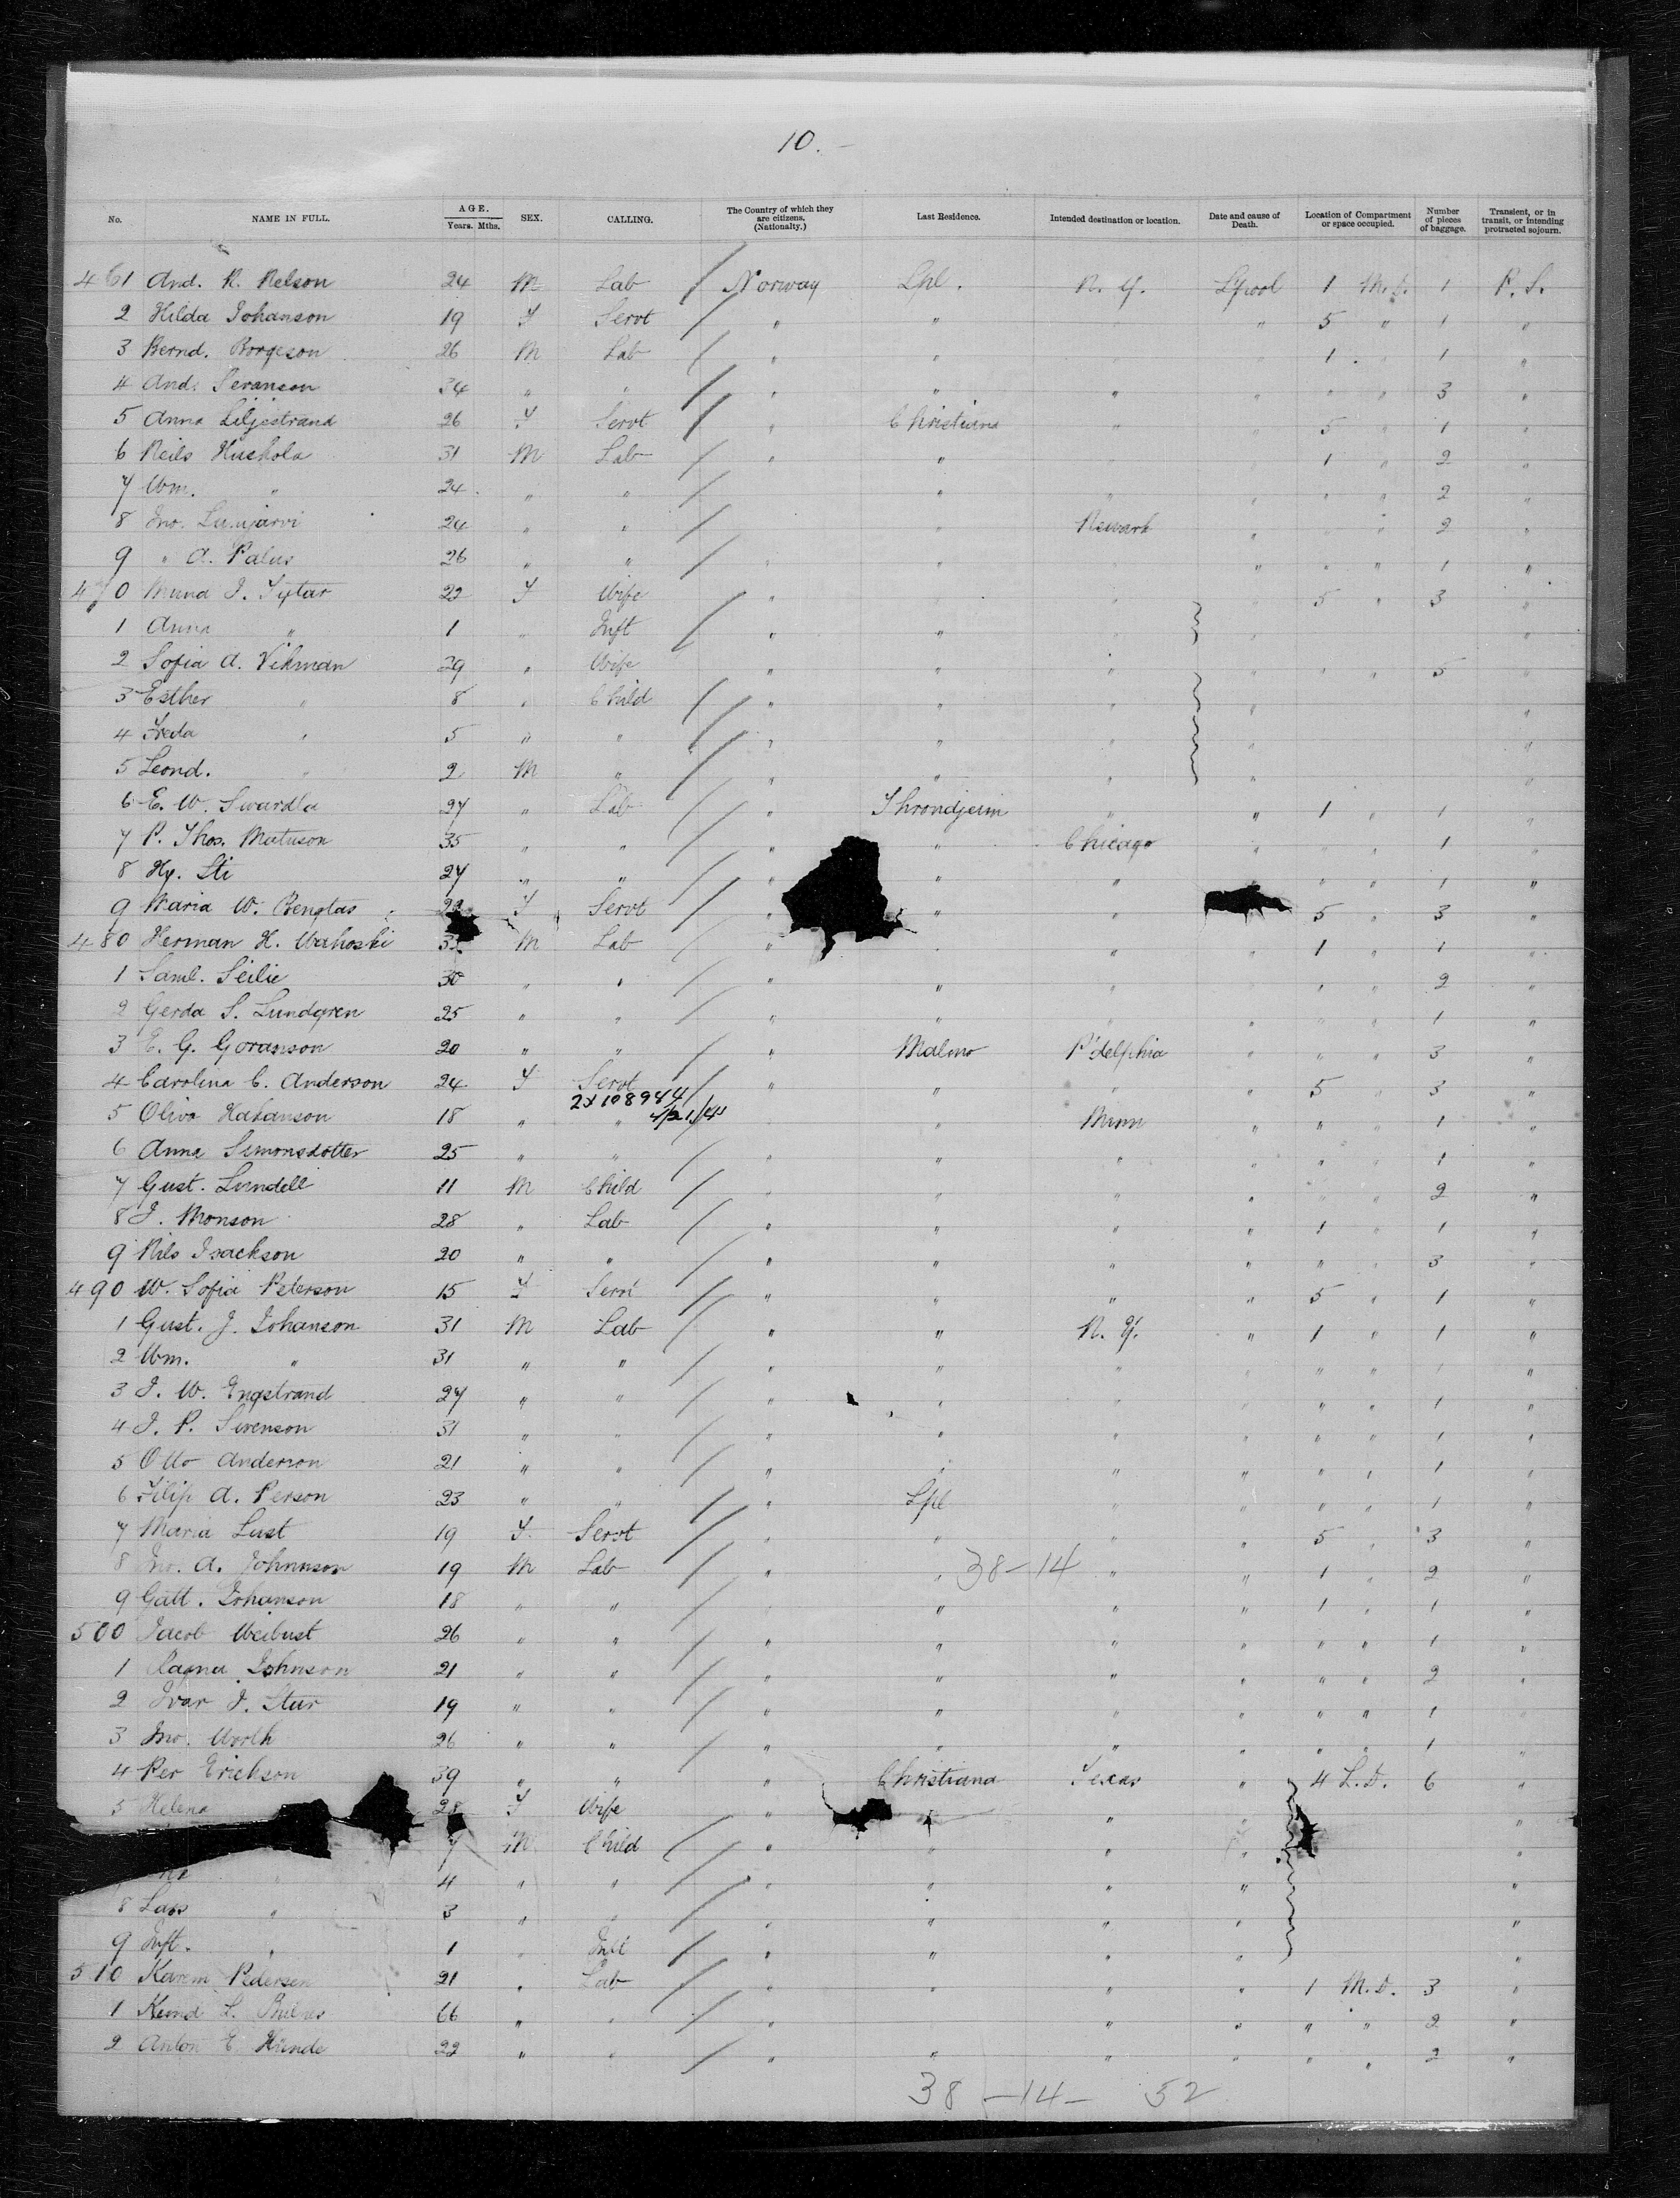 10. -
No. NAME IN FULL. AGE. Years. Mths. SEX. CALLING. The Country of which they are citizens. (Nationalty.) Last Residence. Intended destination or location. Date and cause of Death. Location of Compartment or space occupied. Number of pieces of baggage. Transient, or in transit, or intending protracted sojourn.
461 And. N. Nelson 24 M Lab / Norway Lpl. N. Y. Lpool 1 M.D. 1 P. S.
2 Hilda Johanson 19 F Servt / " " " 5 " 1 "
3 Bernd. Borgeson 26 M Lab / " " 1 . 1 "
4 And. Seranson 34 " " / " " " " " " 3 "
5 Anna Liljestrand 26 F Servt / " Christiana " " 5 " 1 "
6 Neils Huskola 31 M Lab / " " 1 " 2 "
7 Wm. " 24 " " / " " " " " 2 "
8 Jno. 24 " " / " Newark " " 2 "
9 " A. Palus 26 " " / " " " " " 1 "
470 J. Tytar 22 F Wife / " " 5 " 3 "
1 Anna " 1 " Inft / " " " " "
2 Sofia A. Vikman 29 " Wife " " " " " " 5 "
3 Esther " 8 " Child / " " " " "
4 Freda " 5 " " / " " " " "
5 Leond. " 2 M " / " " " " "
6 E. W. Swardla 27 " Lab / " Throndjeim " " 1 " 1 "
7 P. Thos. Matuson 35 " " / " " Chicago " " " 1 "
8 Hy. Sti 27 " " / " " " " " " 1 "
9 Maria W. Bengtas F Servt / " " " 5 " 3 "
480 Herman H. Wahoski M Lab / " " " 1 " 1 "
1 Saml. Seilie 30 " " / " " " " " 2 "
2 Gerda S. Lundgren 25 " " / " " " " " " 1 "
3 E. G. Goranson 20 " " / " Malmo P'delphia " " " 3 "
4 Carolina C. Anderson 24 F Servt / " " " " 5 " 3 "
2X108944
5 Oliva Hakanson 18 " " 4/21/41 " Minn " " " 1 "
6 Anna Simonsdotter 25 " " / " " " " " " 1 "
7 Gust. Lundell 11 M Child / " " " " " " 2 "
8 J. Monson 28 " Lab / " " " " 1 " 1 "
9 Nils Isackson 20 " " / " " " " " " 3 "
490 W. Sofia Peterson 15 F Servt / " " " " 5 " 1 "
1 Gust. J. Johanson 31 M Lab / " " N. Y. " 1 " 1 "
2 Wm. " 31 " " / " " " " " " " "
3 J. W. Engstrand 27 " " / " " " " " " 1 "
4 J. P. Svenson 31 " " / " " " " " " 1 "
5 Otto Anderson 21 " " / " " " " " " 1 "
6 Filip A. Person 23 " " / " Lpl " " " " 1 "
7 Maria Lust 19 F Servt / " " " " 5 " 3 "
8 Jno. A. Johnnson 19 M Lab / " " 38-14 " " 1 " 2 "
9 Gatt. Johanson 18 " " / " " " " 1 " 1 "
500 Jacob Weibust 26 " " / " " " " " " 1 "
1 Ragna Johnson 21 " " / " " " " " " 2 "
2 Ivar J. Stur 19 " " / " " " " " " 1 "
3 Jno. Worth 26 " " / " " " " " " 1 "
4 Per Erickson 39 " " / " Christiana Texas " 4 L.D. 6 "
5 Helena 28 F Wife " " " "
7 M Child / " " " " "
4 " " / " " " " "
8 Lars " 3 " " / " " " " "
9 Inft. " 1 " Inft / " " " " "
510 Karem Pedersen 21 " Lab / " " " " 1 M.D. 3 "
1 L. 66 " " / " " " " " 2 "
2 Anton E. Hunde 22 " " / " " " " " " 2 "
38 -14- 52